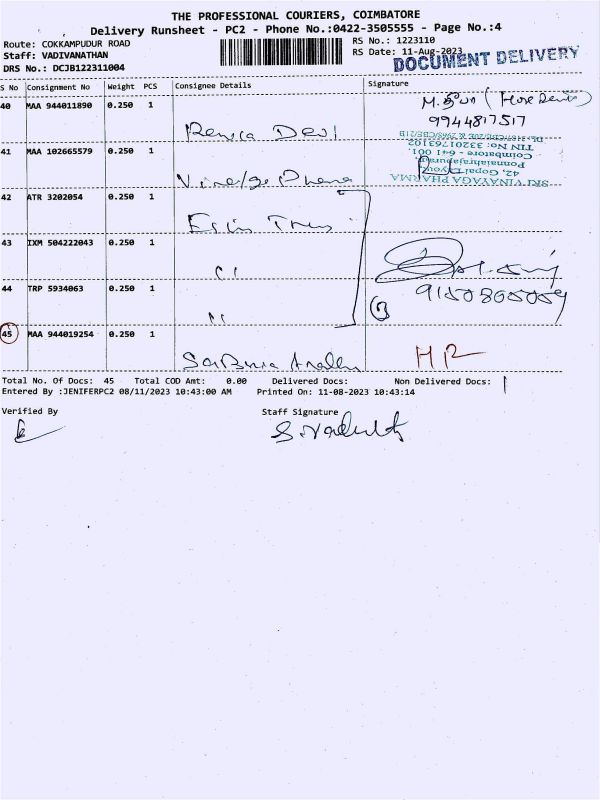 THE PROFESSIONAL COURIERS, COIMBATORE
Delivery Runsheet - PC2 - Phone No.:0422-3505555 - Page No.:4
Route: COKKAMPUDUR ROAD
RS No.: 1223110
Staff: VADIVANATHAN
RS Date: 11-Aug-2023
DOCUMENT DELIVERY
DRS No.: DCJB122311004
S No Consignment No Weight PCS Consignee Details Signature
40 MAA 944011890 0.250 1
9944817517
41 MAA 102665579 0.250 1
SRI VINAYAGA PHARMA
42, Gopal
Ponnaiahrajapuram
Coimbatore - 641 001.
TIN No: 33201763102
42 ATR 3202054 0.250 1
43 IXM 504222043 0.250 1
44 TRP 5934063 0.250 1
9150805009
3
45 MAA 944019254 0.250 1
Total No. Of Docs: 45 Total COD Amt: 0.00 Delivered Docs: Non Delivered Docs: 1
Entered By :JENIFERPC2 08/11/2023 10:43:00 AM Printed On: 11-08-2023 10:43:14
Verified By Staff Signature